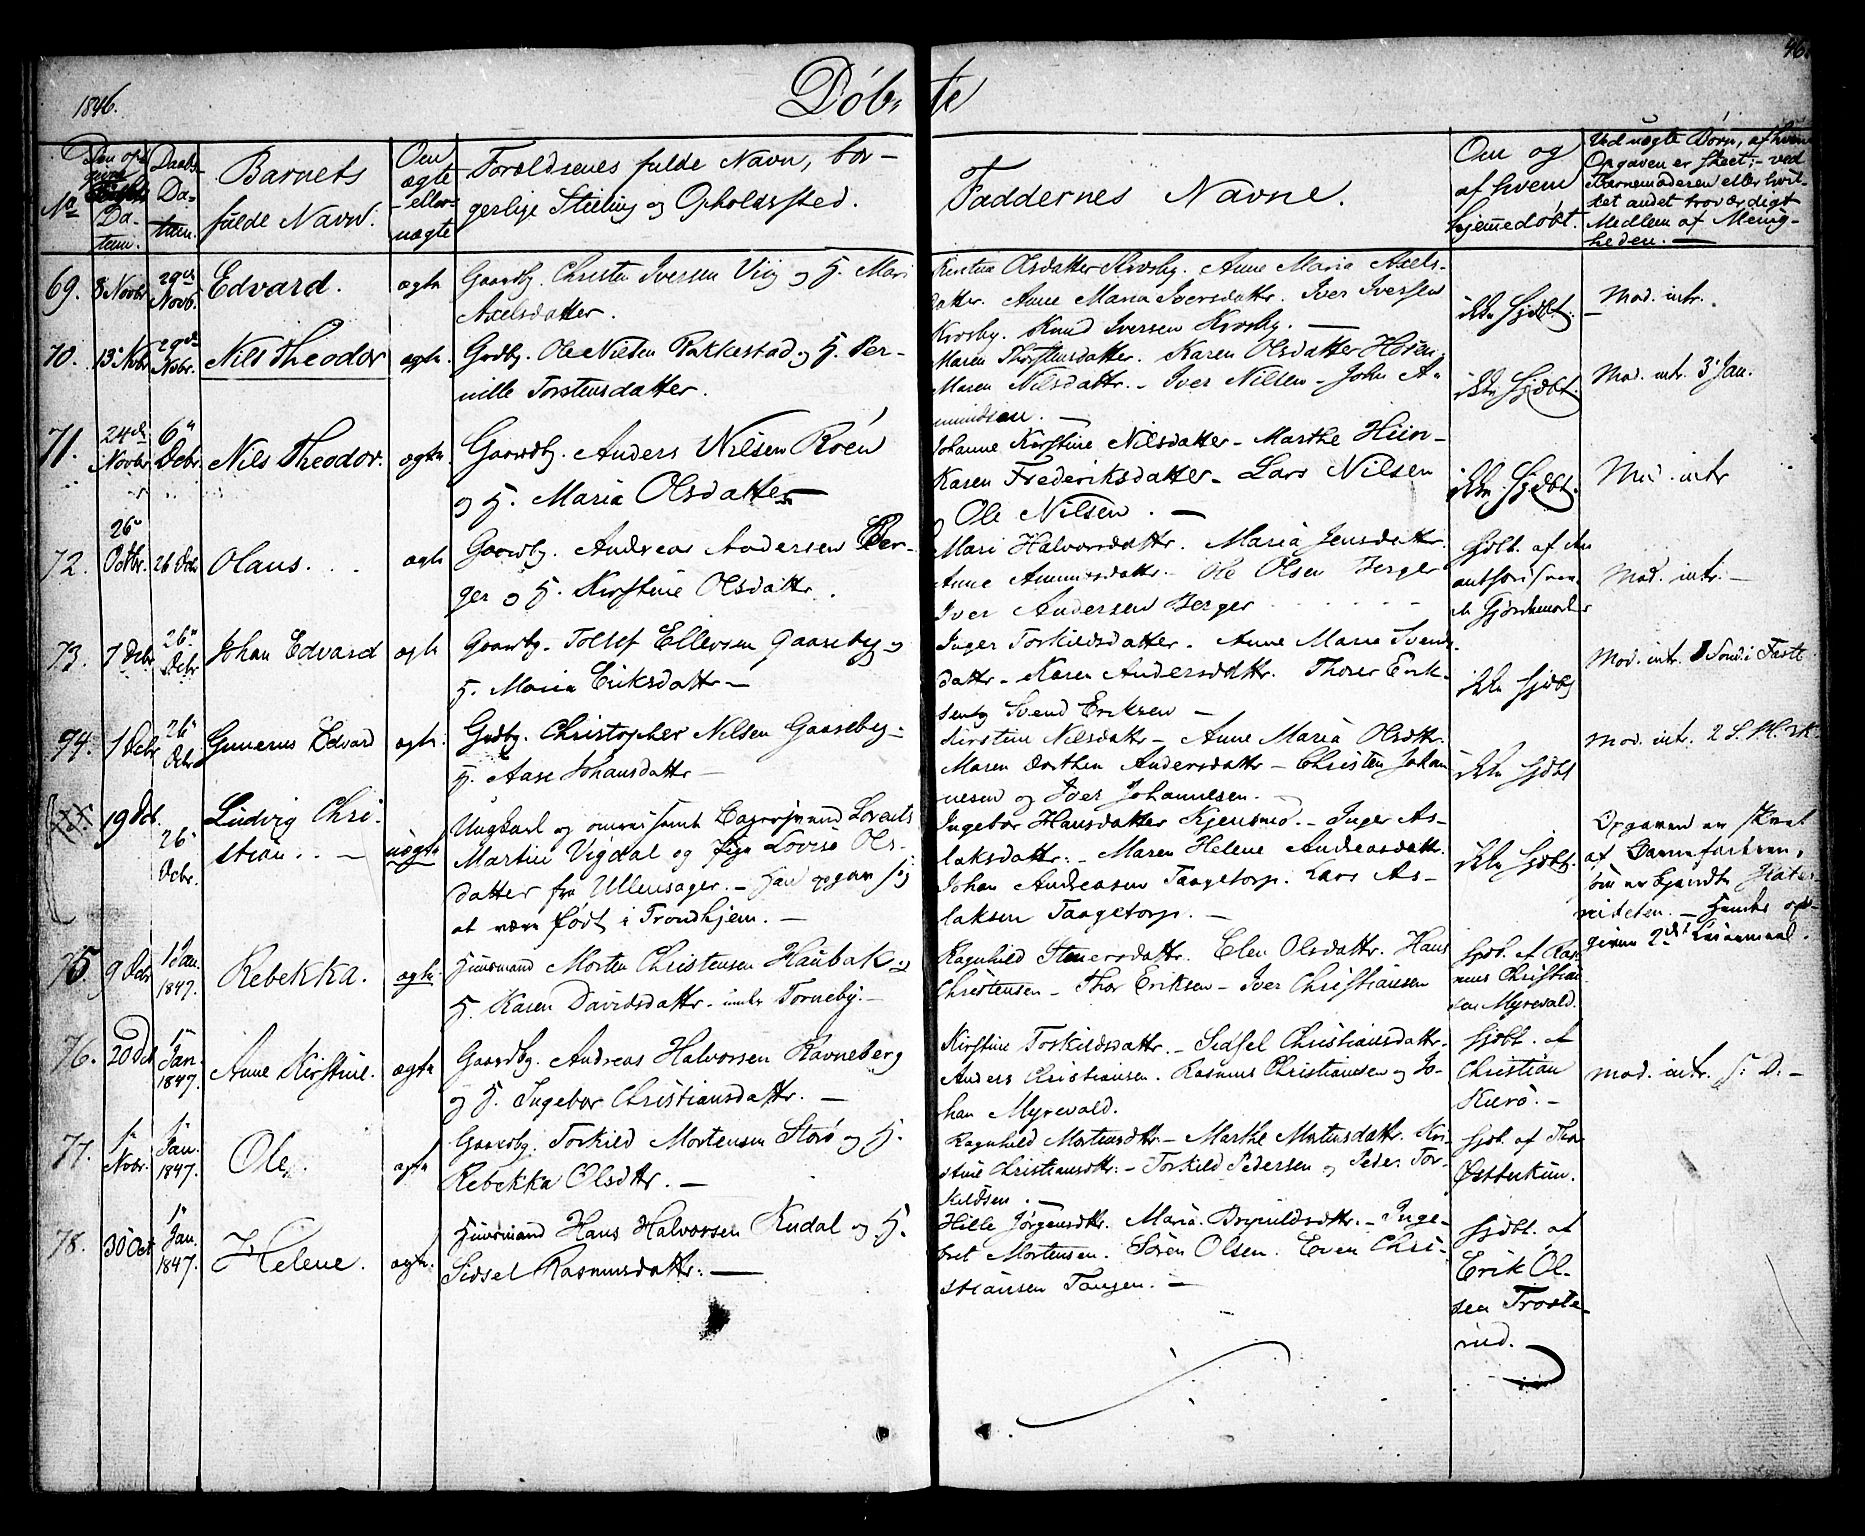 1846.
Døb-
te
46.
No
Den op-
givne
Da-
tum.
Daabs-
Da-
tum.
Barnets
fulde Navn.
Om
ægte
eller
uægte
Forældrenes fulde Navn, bor-
gerlige Stilling og Opholdssted.
Faddernes Navne.
Om og
af hvem
hjemmedøbt.
Ved uægte Børn, af hvem
Opgaven er skeet; - ved
Barnemoderen eller hvil-
ket andet troværdigt
Medlem af Menig-
heden. —
69.
8 Novbr
29de
Novb.
Edvard.
ægte
Gaardb. Christen Iversen Viig og H. Mari
Axelsdatter.
Olsdatter Krosby. Anne Maria Axels-
datter. Anne Maria Iversdattr. Iver Iversen
Krosby. Knud Iversen Krosby. —
ikke Hjdbt.
Mod. intr.
70.
13de Nbr
29de
Nbr.
Nils Theodor
ægte.
Grdb. Ole Nilsen Rakkestad og H. Per-
nille Torstensdatter.
Maren Thorstensdatter. Karen Olsdatter
Maren Nilsdattr. - Iver Nilsen - John A-
mundsen. —
ikke Hjdbt.
Mod. intr. 3de Jan.
71.
24de
Novbr
6te
Debr.
Nils Theodor.
ægte.
Gaardb. Anders Nilsen Roén
og H. Maria Olsdatter
Johanne Kirstine Nilsdatter - Marthe
Karen Frederiksdatter - Lars Nilsen
Ole Nilsen. —
ikke Hjdbt.
Mod. intr
72.
26de
Octbr.
26 Debr
Olaus.
ægte
Gaardb. Andreas Andersen Ber-
ger og H. Kirstine Olsdattr.
Mari Halvorsdattr. Maria Jensdattr.
Anne Ammersdattr. - Ole Olsen Berger
Iver Andersen Berger
Hjdbt. af den
Mod. intr. —
73.
7 Debr
26de
Debr
Johan Edvard
ægte
Gaardb. Tollef Ellevsen Gaaseby og
H. Maria Eriksdattr —
Inger Torkildsdatter. Anne Marie Svends
dattr - Karen Andersdattr. Thorer Erik-
sen og Svend Eriksen —
ikke Hjdbt
Mod. intr. 1 Sønd. i Faste
74.
1 Debr
26de
Debr
Gunerus Edvard
ægte.
Grdb. Christopher Nilsen Gaaseby -
H. Aase Johansdattr —
Kirstine Nilsdattr - Anne Maria Olsdttr.
Maren Dorthea Andersdattr - Christen Johan
nesen og Iver Johannesen. —
ikke Hjdbt
Mod. intr. 2 S.
19 Oct.
26de
Debr.
Ludvig Chri-
stian. —
uægte
Ungkarl og Lorents
Martin Vigdal og Pige Lovise Ols-
datter fra Ullensager. - Han opgav sig
at være født i Trondhjem. —
Ingebor Hansdatter - Inger As-
laksdattr: - Maren Helene Andreasdattr.
Johan Andreasen Taagetorp. Lars As-
laksen Taagetorp. —
ikke Hjdbt.
Opgaven er skeet
af Barnefaderen,
givne 2det Leiermaal.
75
9 Debr
1 Jan.
1847.
Rebekka.
ægte.
Huusmand Morten Christensen Haubak og
H. Karen Davidsdattr. under Torneby. —
Ragnhild Stenersdattr. Elen Olsdattr. Hans
Christensen - Thor Eriksen - Iver Christiansen
Hjdb. af Ras-
mus Christian
sen Myrevald.
76.
20 Oct
1
Jan.
1847.
Anne Kirstine.
ægte
Gaardb. Andreas Halvorsen Ravneberg
og H. Ingebor Christiansdattr. —
Kirstine Torkildsdattr. - Sidsel Christiansdattr.
Anders Christiansen. Rasmus Christiansen og Jo-
han Myrevald.
Hjdbt. af
Christian
Kurø. —
Mod. intr. s. D. —
77.
1
Novbr.
1
Jan.
1847.
Ole.
ægte
Gaardb. Torkild Mortensen Storø og H.
Rebekka Olsdttr. —
Ragnhild Mortensdttr - Marthe Mortensdattr. Kir-
stine Christiansdttr: - Torkild Pedersen og Peder Tor-
kildsen. —
Hjdb. af
78.
30 Oct
1
Jan.
1847.
Helene.
ægte.
Huusmand Hans Halvorsen Rudal og H.
Sidsel Rasmusdattr: —
Hille Jørgensdttr. Maria - Inge-
bret Mortensen. Søren Olsen. Even Chri-
stiansen Tangen. —
Hjdbt. af
Erik Ol-
sen Troste-
rud. —